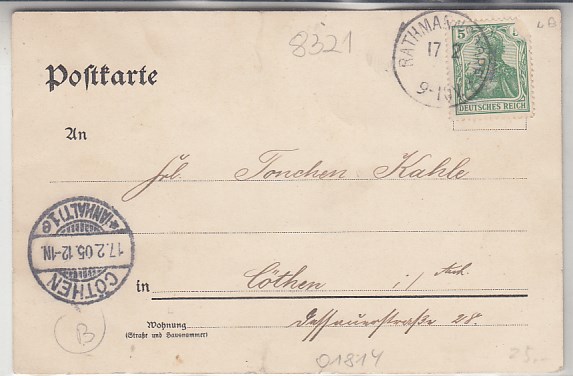 8321
RATHMANNSDORF
17 2
9-10V
5
DEUTSCHES REICH
Postkarte
An
Frl. Tonchen Kahle
CÖTHEN
17.2.05.12-1N.
*(ANHALT)1e
in Cöthen i/Anh.
Wohnung
(Straße und Hausnummer)
Dessauerstraße 28.
B
01814
25.-